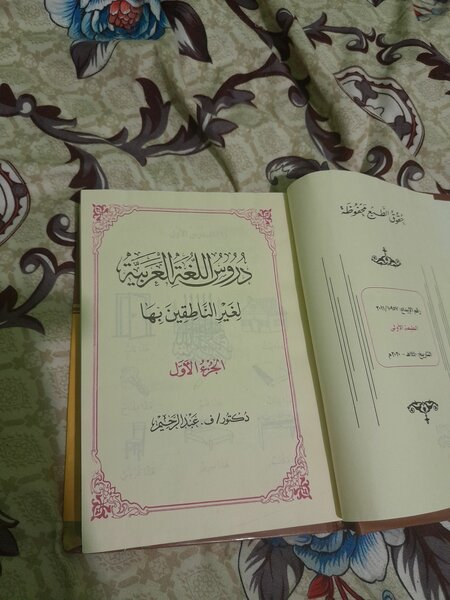 حقوق الطبع محفوظة
رقم الإيداع:
الطبعة الأولى
التاريخ:
دُرُوسُ اللُّغَةِ العَرَبِيَّةِ
لِغَيْرِ النَّاطِقِينَ بِهَا
الجُزْءُ الأَوَّلُ
دكتور/ ف. عبد الرحيم